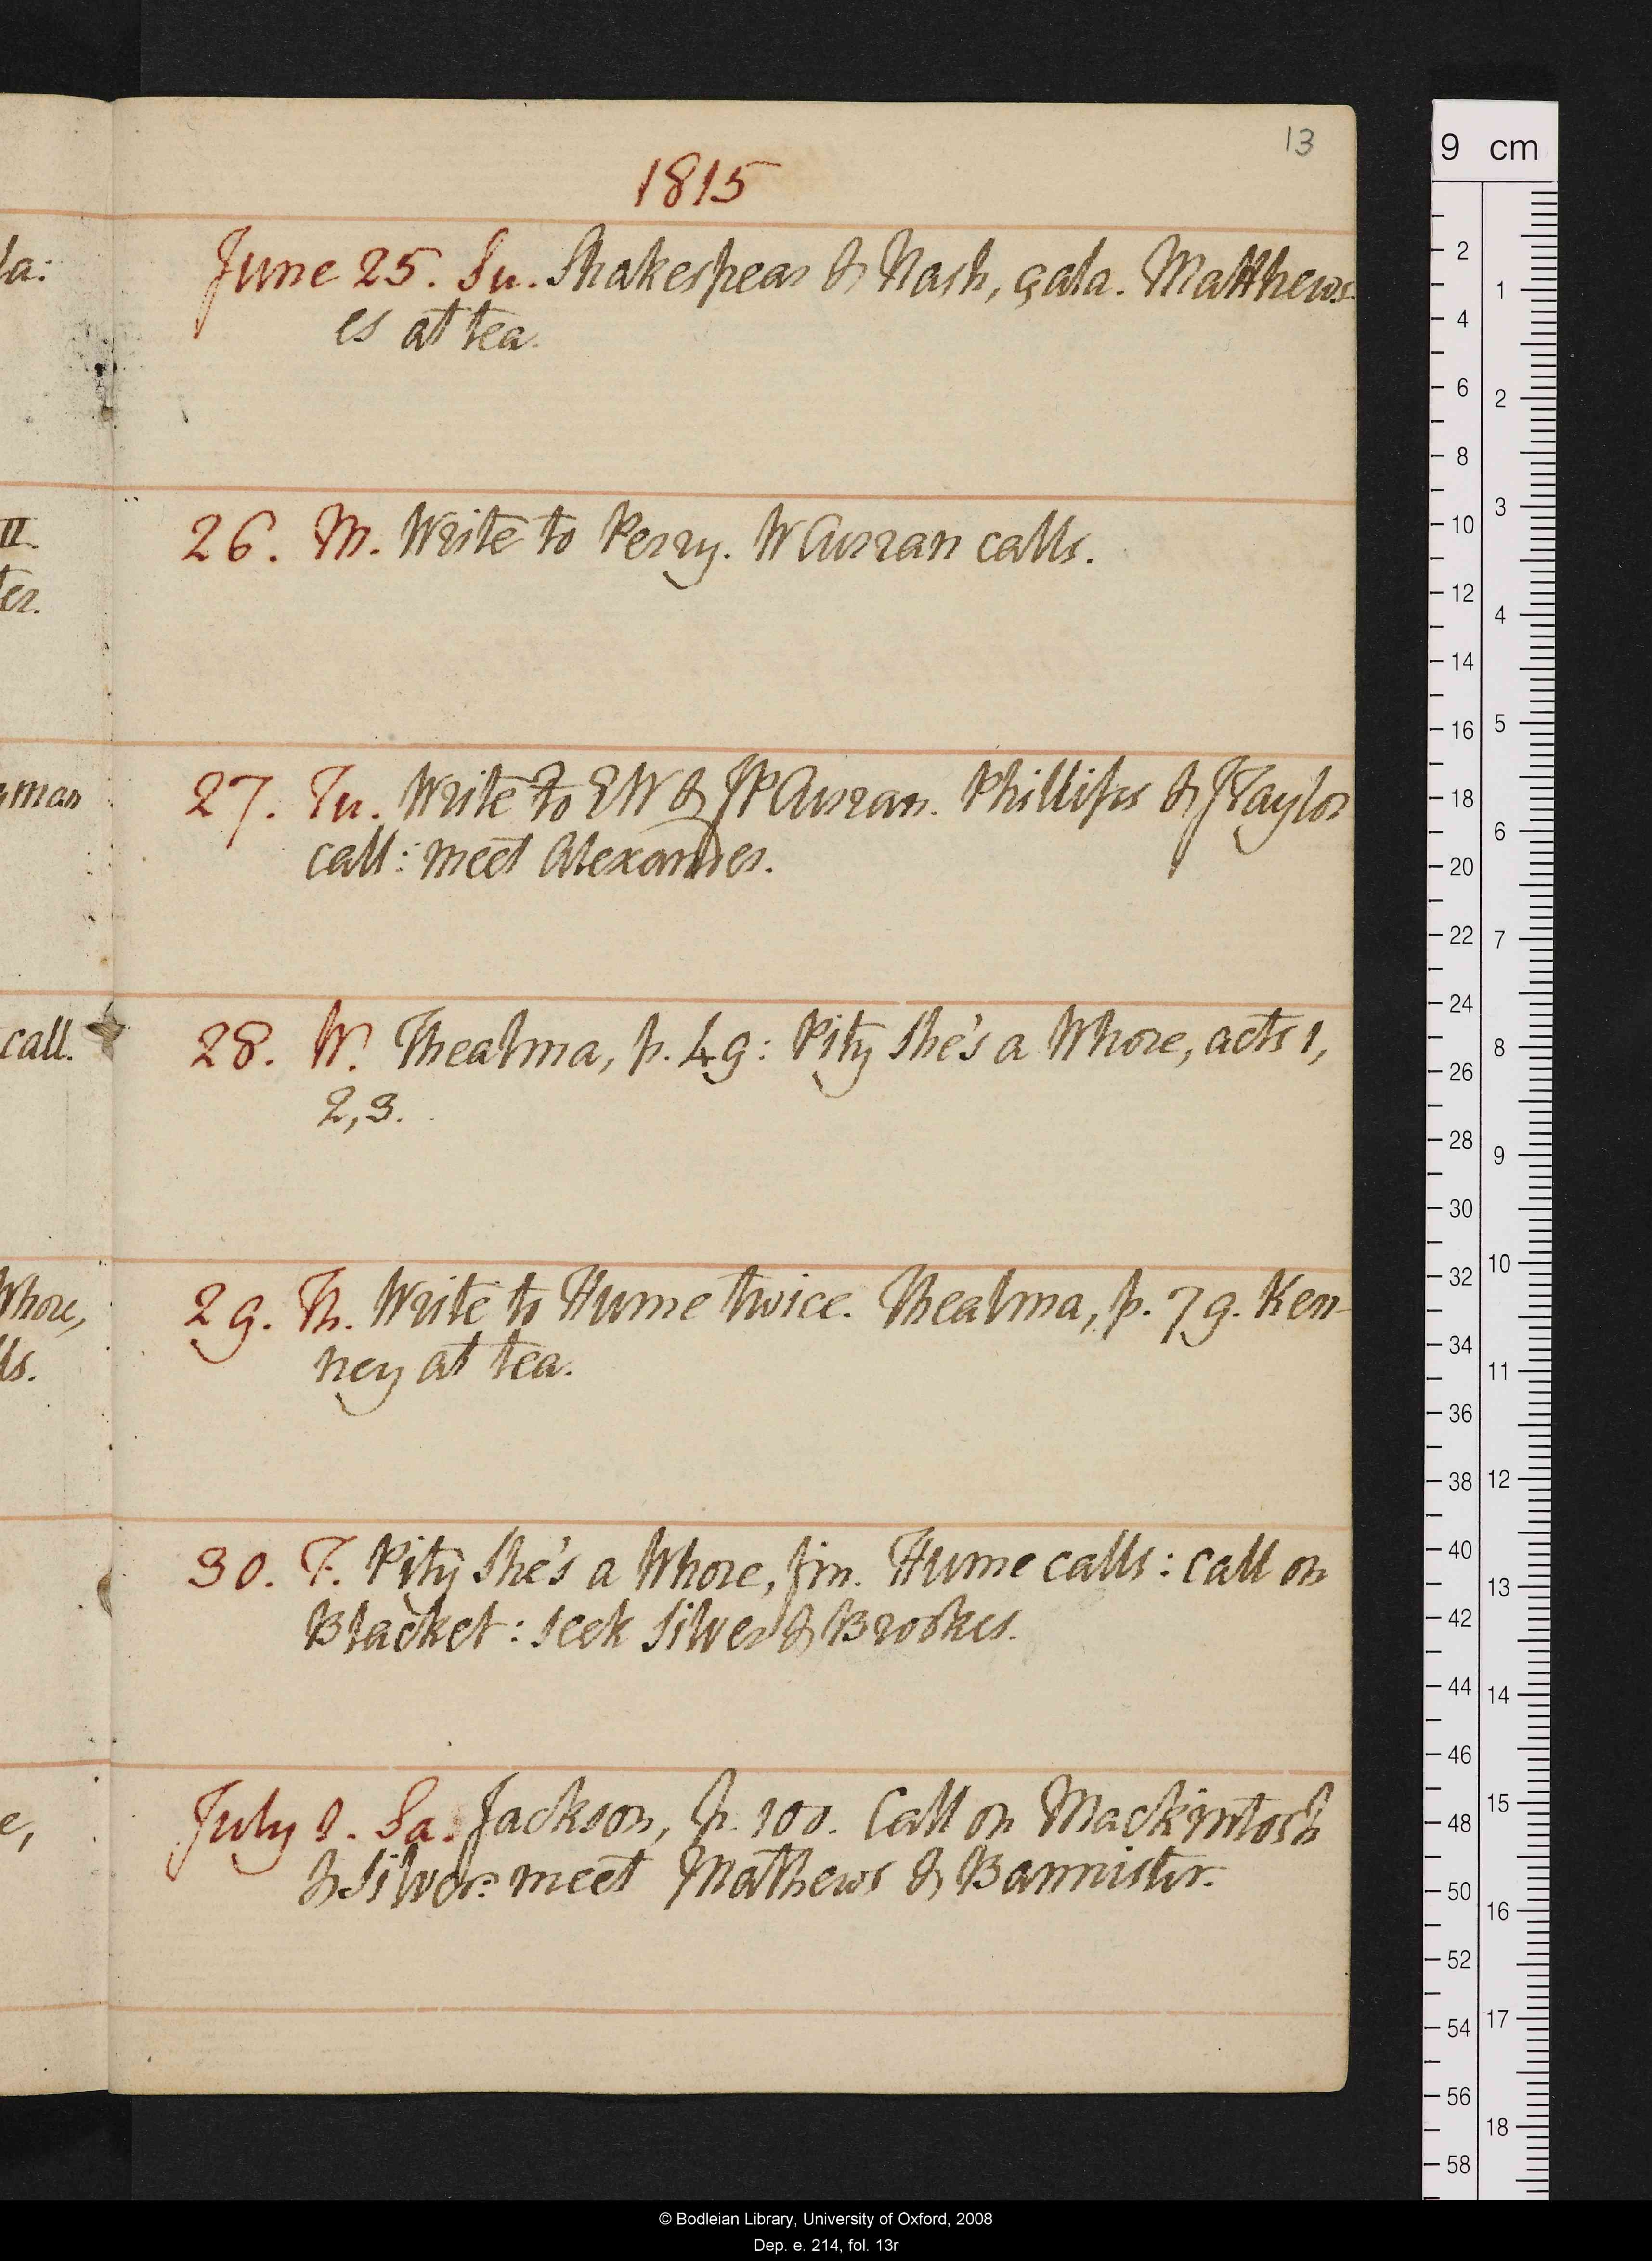 13
1815
la:
June 25. Su. Shakespear & Nash, gala. Matthews-
es at tea.
II.
26. M. Write to Perry. W Curran calls.
er.
man
27. Tu. Write to EW & JP Curran. Phillips & J Taylor
call: meet Alexander.
28. W. Thealma, p. 49: Pity She's a Whore, acts 1,
call.
2, 3.
Whore,
29. Th. Write to Hume twice. Thealma, p. 79. Ken-
ney at tea.
ls.
30. F. Pity She's a Whore, fin. Hume calls: call on
Blacket: seek Silver & Brookes.
e,
July 1. Sa. Jackson, p. 100. Call on Mackintosh
& Silver: meet Mathews & Bannister.
9 cm
2
4
6
8
10
12
14
16
18
20
22
24
26
28
30
32
34
36
38
40
42
44
46
48
50
52
54
56
58
1
2
3
4
5
6
7
8
9
10
11
12
13
14
15
16
17
18
© Bodleian Library, University of Oxford, 2008
Dep. e. 214, fol. 13r